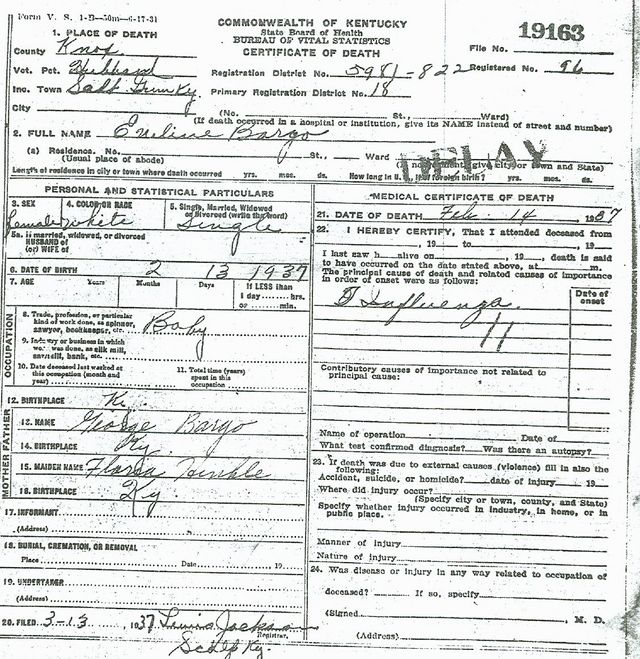 Form V. S. 1-B—50m—6-17-31
COMMONWEALTH OF KENTUCKY
State Board of Health
BUREAU OF VITAL STATISTICS
CERTIFICATE OF DEATH
19163
File No.
Registered No. 96
1. PLACE OF DEATH
County Knox
Vot. Pct. Hubbard
Inc. Town
City
Registration District No. 5981-822
Primary Registration District No. 18
(No. St., Ward)
(If death occurred in a hospital or institution, give its NAME instead of street and number)
2. FULL NAME Eveline Bargo
(a) Residence. No. St., Ward
(Usual place of abode) (If nonresident, give city or town and State)
DELAY
Length of residence in city or town where death occurred yrs. mos. ds. How long in U. S., if of foreign birth? yrs. mos. ds.
PERSONAL AND STATISTICAL PARTICULARS
3. SEX female
4. COLOR OR RACE white
5. Single, Married, Widowed
or Divorced (write the word)
Single
5a. If married, widowed, or divorced
HUSBAND of
(or) WIFE of
6. DATE OF BIRTH 2 13 1937
7. AGE Years Months Days If LESS than
1 day hrs.
or min.
OCCUPATION
8. Trade, profession, or particular
kind of work done, as spinner,
sawyer, bookkeeper, etc. Baby
9. Industry or business in which
work was done, as silk mill,
saw mill, bank, etc.
10. Date deceased last worked at
this occupation (month and
year)
11. Total time (years)
spent in this
occupation
12. BIRTHPLACE Ky
FATHER
13. NAME George Bargo
14. BIRTHPLACE Ky
MOTHER
15. MAIDEN NAME
16. BIRTHPLACE Ky
17. INFORMANT
(Address)
18. BURIAL, CREMATION, OR REMOVAL
Place Date 19
19. UNDERTAKER
(Address)
20. FILED 3-13 1937 Lewis Jackson
Registrar.
Scalf Ky.
MEDICAL CERTIFICATE OF DEATH
21. DATE OF DEATH Feb 14 1937
22. I HEREBY CERTIFY, That I attended deceased from
, 19 to , 19
I last saw h alive on , 19 , death is said
to have occurred on the date stated above, at m.
The principal cause of death and related causes of importance
in order of onset were as follows:
Date of
onset
Influenza
11
Contributory causes of importance not related to
principal cause:
Name of operation Date of
What test confirmed diagnosis? Was there an autopsy?
23. If death was due to external causes (violence) fill in also the
following:
Accident, suicide, or homicide? date of injury 19
Where did injury occur?
(Specify city or town, county, and State)
Specify whether injury occurred in industry, in home, or in
public place.
Manner of injury
Nature of injury
24. Was disease or injury in any way related to occupation of
deceased? If so, specify
(Signed M. D.
(Address)